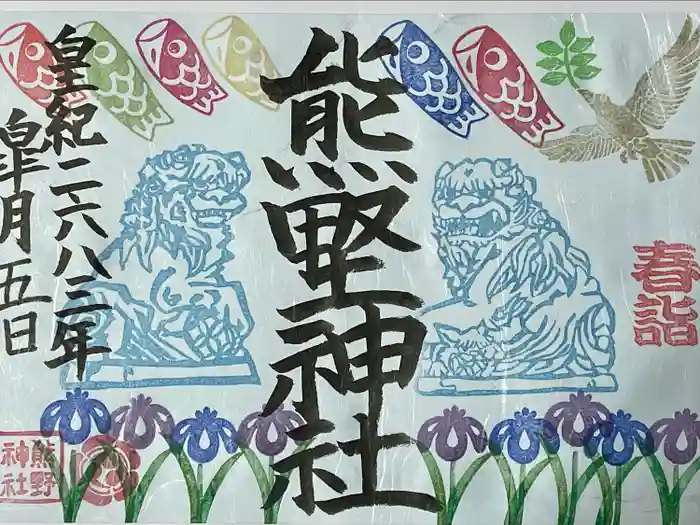 春詣
熊野神社
皇紀二六八三年
皐月五日
熊野
神社